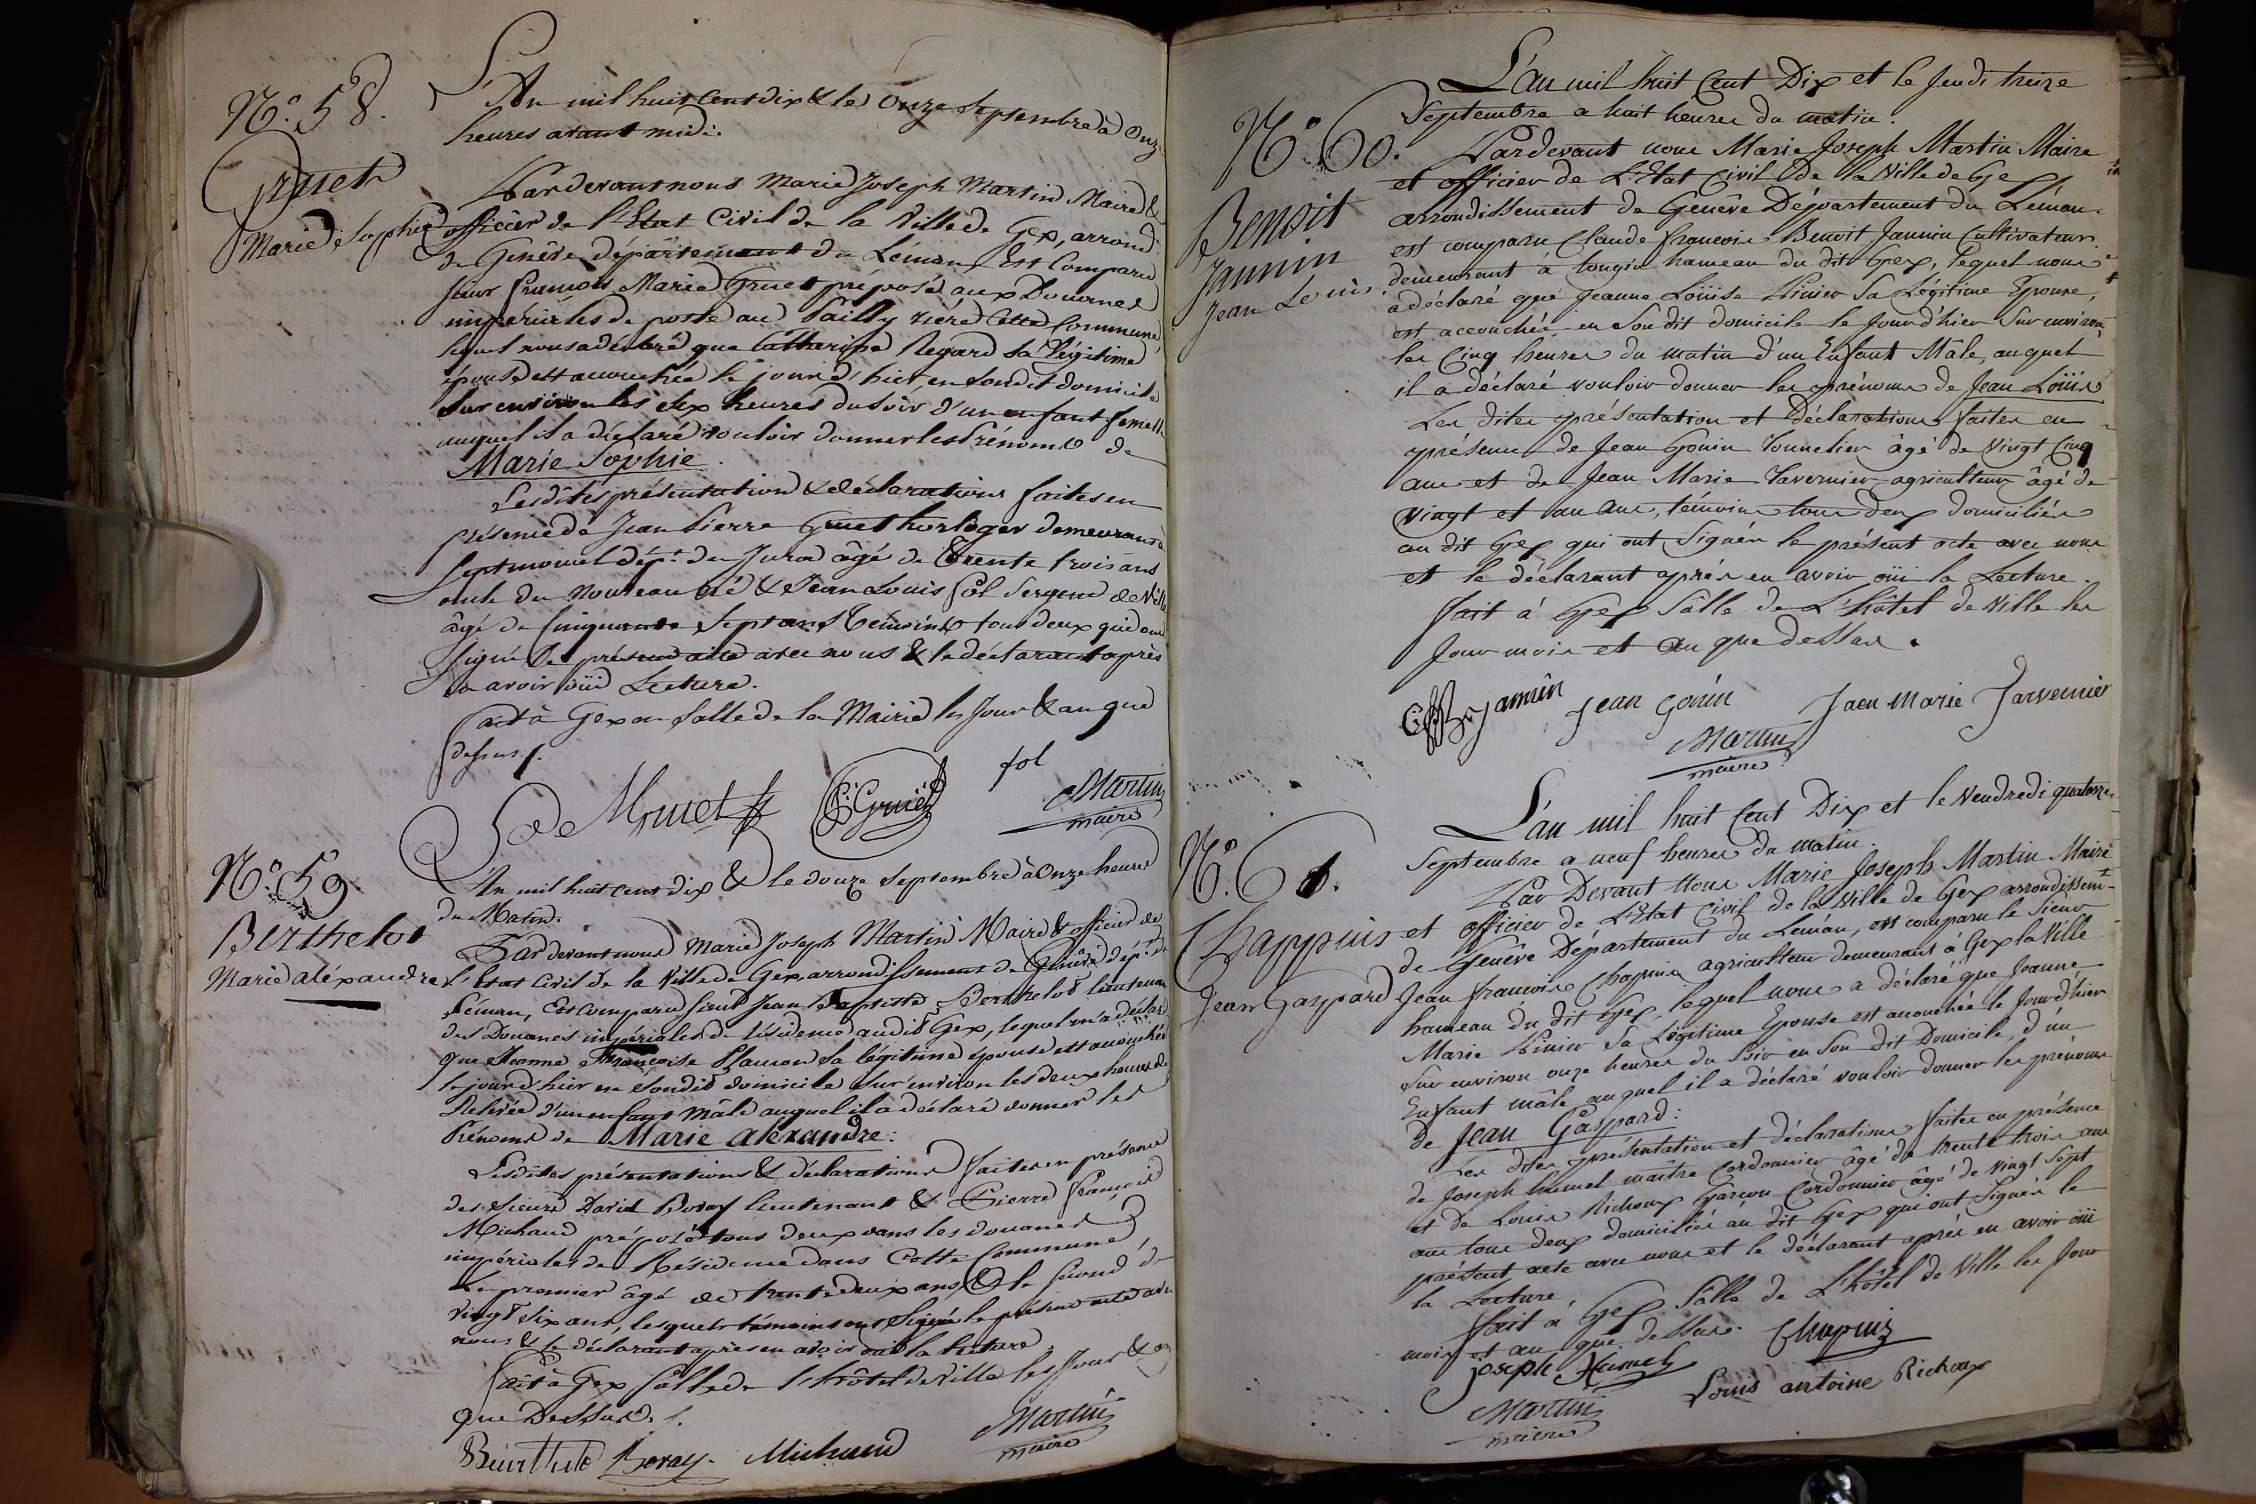 N.° 58.
Gruet
Marie Sophie
L'An mil huit cent dix & le Onze Septembre à Onze
heures avant midi.
Pardevant nous Marie Joseph Martin Maire &
officier de l'Etat Civil de la Ville de Gex, arrond.t
de Genève département du Léman, Est Comparu
Sieur François Marie Gruet préposé aux Douanes
impériales de poste au Pailly rière cette Commune,
lequel nous a déclaré que Catherine Regard sa légitime
épouse est accouchée le jour d'hier, en son dit domicile
Sur environ les Six heures du soir d'un enfant femelle
auquel il a déclaré vouloir donner les Prénoms de
Marie Sophie.
Lesdites présentation & déclarations faites en
présence de Jean Pierre Gruet horloger demeurant à
Septmoncel dép.t du Jura âgé de trente trois ans
oncle du nouveau né & Jean Louis fol Sergent de Ville
âgé de Cinquante Sept ans témoins tous deux qui ont
signé le présent acte avec nous & le déclarant après
en avoir ouï Lecture.
fait à Gex en salle de la Mairie les Jour & an que
dessus.
Gruet fol
Martin
maire
N.° 59.
Berthelot
Marie aléxandre
L'An mil huit cent dix & le douze Septembre à Onze heures
du Matin.
Pardevant nous Marie Joseph Martin Maire & officier de
l'Etat Civil de la Ville de Gex arrondissement de Genève dép.t du
Léman, Est comparu Sieur Jean Baptiste Berthelot lieutenant
des Douanes impériales de résidence au dit Gex, lequel m'a déclaré
que Jeanne Françoise Hamon sa légitime épouse est accouchée
le jour d'hier en son dit domicile sur environ les deux heures de
Relevée d'un enfant mâle auquel il a déclaré donner les
Prénoms de Marie alexandre:
Lesdites présentations & déclarations faites en présence
des Sieurs David Boray lieutenant & Pierre François
Michaud préposé tous deux dans les douanes
impériales de Résidence dans Cette Commune,
Le premier âgé de trente deux ans & le second de
vingt Six ans, lesquels témoins ont Signé le présent acte avec
nous & le déclarant après en avoir ouï la lecture
fait à Gex Salle de l'hôtel de Ville les Jour & an
que Dessus.
Berthelot Boray Michaud
Martin
maire
N.° 60.
Benoit
Jannin
Jean Louis
L'an mil huit Cent Dix et le Jeudi treize
Septembre a huit heures du matin.
Pardevant nous Marie Joseph Martin Maire
et officier de L'Etat Civil de la Ville de Gex
arrondissement de Genêve Département du Léman
est comparu Claude françois Benoit Jannin Cultivateur
demeurant à tougin hameau du dit Gex, lequel nous
a déclaré que Jeanne Loüise Vinier Sa Légitime Epouse,
est accouchée en Son dit domicile le Jour d'hier Sur environ
les Cinq heures du matin d'un Enfant Mâle, auquel
il a déclaré vouloir donner les prénoms de Jean Loüis
Les dites présentation et déclarations faites en
présence de Jean Gonin Tonnelier âgé de vingt Cinq
ans et de Jean Marie Tavernier agriculteur âgé de
vingt et un ans, témoins tous deux domiciliés
au dit Gex qui ont Signés le présent acte avec nous
et le déclarant après en avoir oüi la Lecture.
fait à Gex Sâlle de L'hôtel de Ville les
Jour mois et an que dessus.
Jannin Jean Gonin Jaen Marie Tarvernier
Martin
maire
N.° 61.
Chappuis
Jean Gaspard
L'an mil huit Cent Dix et le Vendredi quatorze
Septembre a neuf heures du matin.
Par Devant Nous Marie Joseph Martin Maire
et officier de L'Etat Civil de la Ville de Gex arrondissem.t
de Genêve Département du Léman, est comparu le Sieur
Jean françois Chapuis agriculteur demeurant à Gex la Ville
hameau du dit Gex, lequel nous a déclaré que Jeanne
Marie Vinier Sa Légitime Epouse est accouchée le Jour d'hier
Sur environ onze heures du Soir en Son dit Domicile, d'un
Enfant mâle auquel il a déclaré vouloir donner les prénoms
de Jean Gaspard:
Les dites présentation et déclarations faites en présence
de Joseph humel maître Cordonnier âgé de trente trois ans
et de Louis Richoux Garçon Cordonnier âgé de vingt Sept
ans tous deux domiciliés au dit Gex qui ont Signés le
présent acte avec nous et le déclarant après en avoir oüi
la Lecture.
fait à Gex Sâlle de L'hôtel de Ville les Jour
mois et an que dessus. Chapuis
joseph Humel
Louis antoine Richoux
Martin
maire